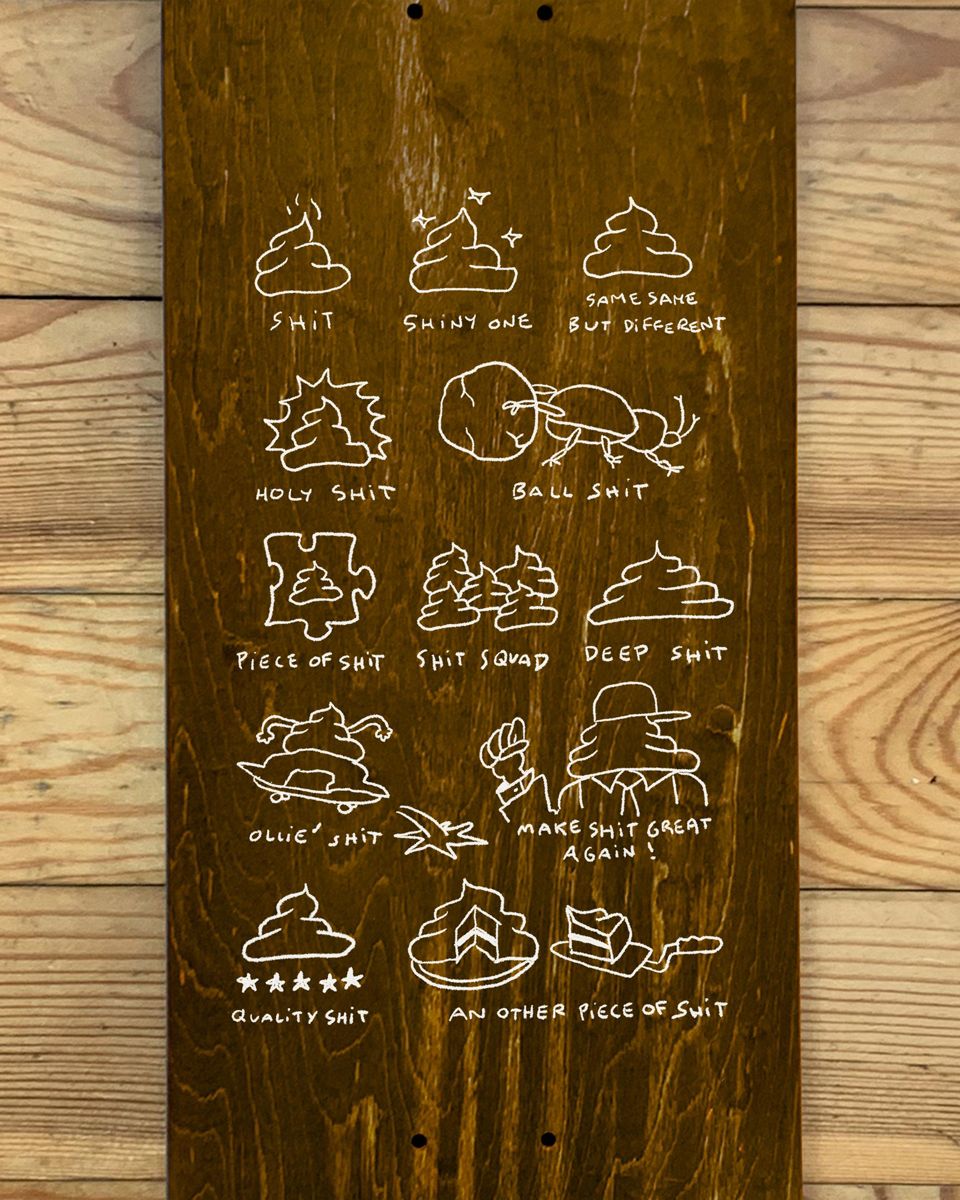 SHiT
SHiNY ONE
SAME SAME
BUT DiFFERENT
HOLY SHiT
BALL SHiT
PiECE OF SHiT
SHiT SQUAD
DEEP SHiT
OLLiE' SHiT
MAKE SHiT GREAT
AGAiN !
QUALiTY SHiT
AN OTHER PiECE OF SHiT